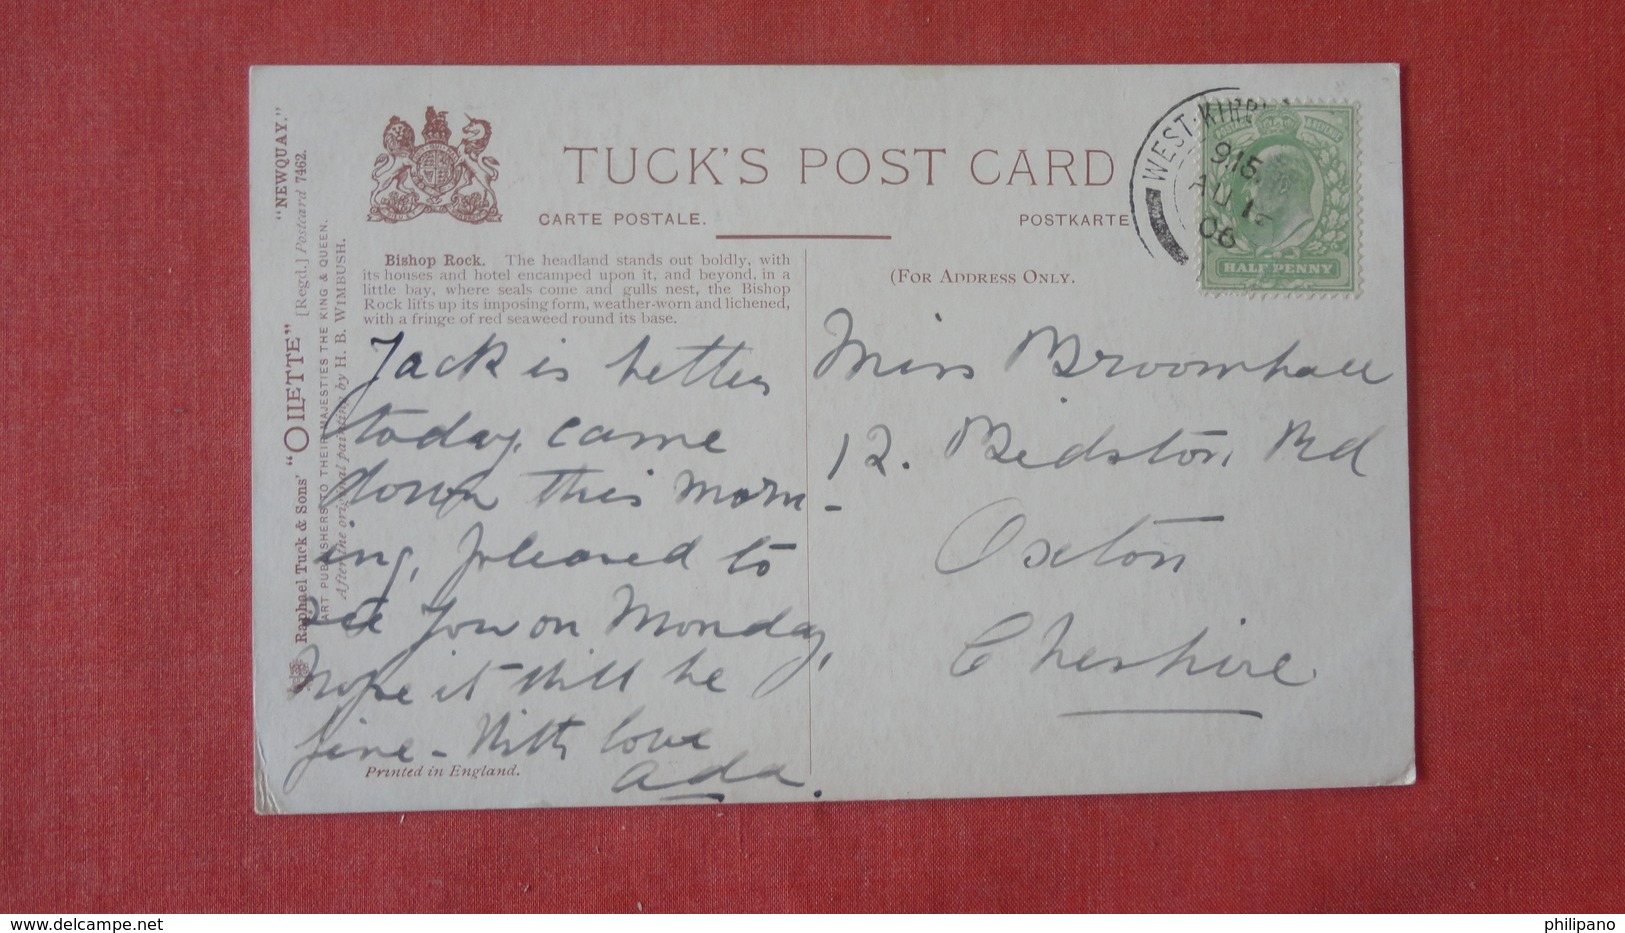 "NEWQUAY."
Raphael Tuck & Sons' "OILETTE" [Regd.] Postcard 7462.
ART PUBLISHERS TO THEIR MAJESTIES THE KING & QUEEN.
After the original painting by H. B. WIMBUSH.
TUCK'S POST CARD
CARTE POSTALE.
POSTKARTE
WEST-KIRB
9.15
AU 1
06
HALFPENNY
Bishop Rock. The headland stands out boldly, with
its houses and hotel encamped upon it, and beyond, in a
little bay, where seals come and gulls nest, the Bishop
Rock lifts up its imposing form, weather-worn and lichened,
with a fringe of red seaweed round its base.
(FOR ADDRESS ONLY.
Jack is better
today, came
down this morn-
ing, pleased to
see you on Monday,
hope it will be
fine - With love
Ada.
Miss Broomhall
12. Bidston Rd
Oxton
Cheshire
Printed in England.
delcampe.net
philipano